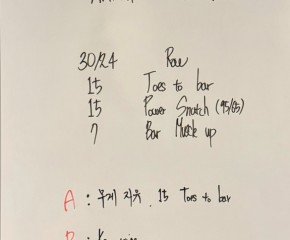 30/24 Row
15 Toes to bar
15 Power Snatch (95/65)
7 Bar Muscle up
A : 무게 지유, 15 Toes to bar
B :